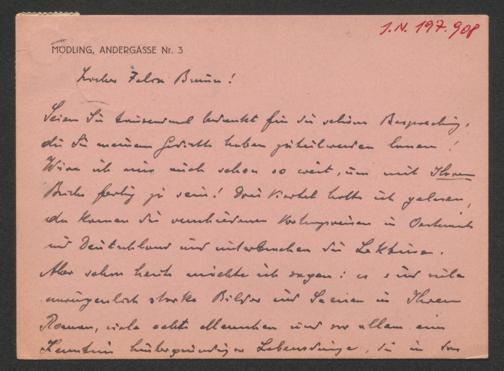 I.N. 197.908
MÖDLING, ANDERGASSE Nr. 3
Lieber Felix Braun!
Seien Sie tausendmal bedankt für die schöne Besprechung,
die Sie meinem Gedichte haben zuteilwerden lassen!
Wäre ich nur auch schon so weit, um mit Ihrem
Buche fertig zu sein! Drei Viertel hatte ich gelesen,
da kamen die verschiedenen Vortragsreisen in Oesterreich
und Deutschland und unterbrachen die Lektüre.
Aber schon heute möchte ich sagen: es sind viele
unvergesslich starke Bilder und Szenen in Ihrem
Roman, viele echte Menschen und vor allem eine
Kenntnis hintergründiger Lebensdinge, die in das